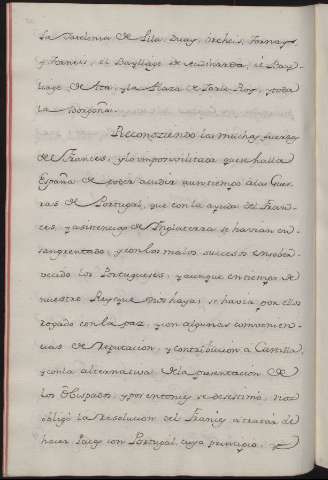 la Castelania de Lila, Duay, Orchies, Tornay,
y Furnes, el Bayllage de Audinarda, el Bay
liage de Ata, y la Plaza de Carle Roy, y toda
la Borgoña.
Reconoziendo las muchas fuerzas
de Frances, y la imposivilidad que se halla
España de poder acudir aun tiempo a las Guer
ras de Portugal, que con la ayuda del Fran-
ces, y asistencias de Inglaterra se havian en-
sangrentado, y con los malos succesos ensober
vecido los Portugueses, y aunque en tiempo de
nuestro Rey que Dios haya, se havia por ellos
rogado con la paz, y con algunas combenien-
cias de Reputacion, y contribucion a Castilla,
y con la alternativa de la presentacion de
los Obispados, y por entonces se desestimó, nos
obligó la Resolucion del Frances a tratar de
hacer Pazes con Portugal, cuyo principio, y